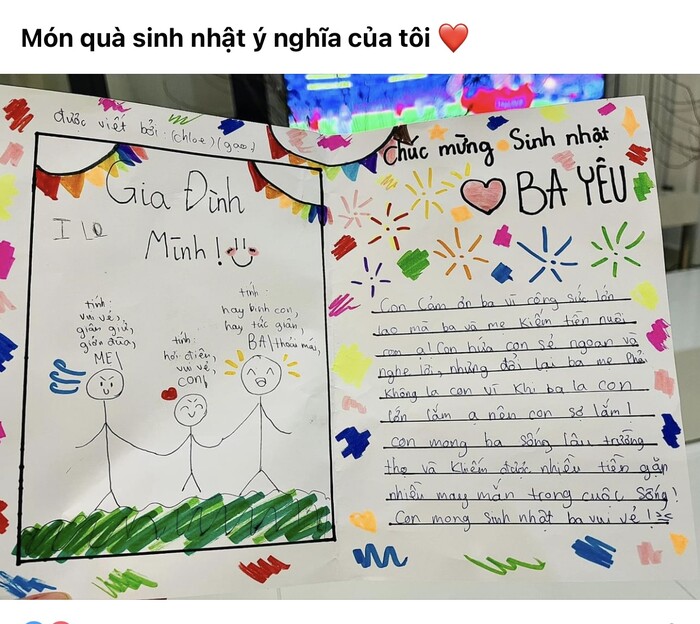 Món quà sinh nhật ý nghĩa của tôi ❤️
được viết bởi: (chloe) (gạo)
Gia Đình
Mình!
I LO
tính:
vui vẻ,
giận giữ,
giỡn đùa,
MẸ
tính:
hơi điệu,
vui vẻ,
CON
tính:
hay Bình con,
hay tức giận,
BA thoải mái,
Chúc mừng Sinh nhật
BA YÊU
Con Cảm ơn ba vì công sức lớn
lao mà ba và mẹ kiếm tiền nuôi
con ạ! Con hứa con sẽ ngoan và
nghe lời, nhưng đổi lại ba mẹ phải
không la con vì khi ba la con
lớn lắm ạ nên con sợ lắm!
con mong ba sống lâu trường
thọ và khiếm được nhiều tiền gặp
nhiều may mắn trong cuộc sống!
Con mong sinh nhật ba vui vẻ!